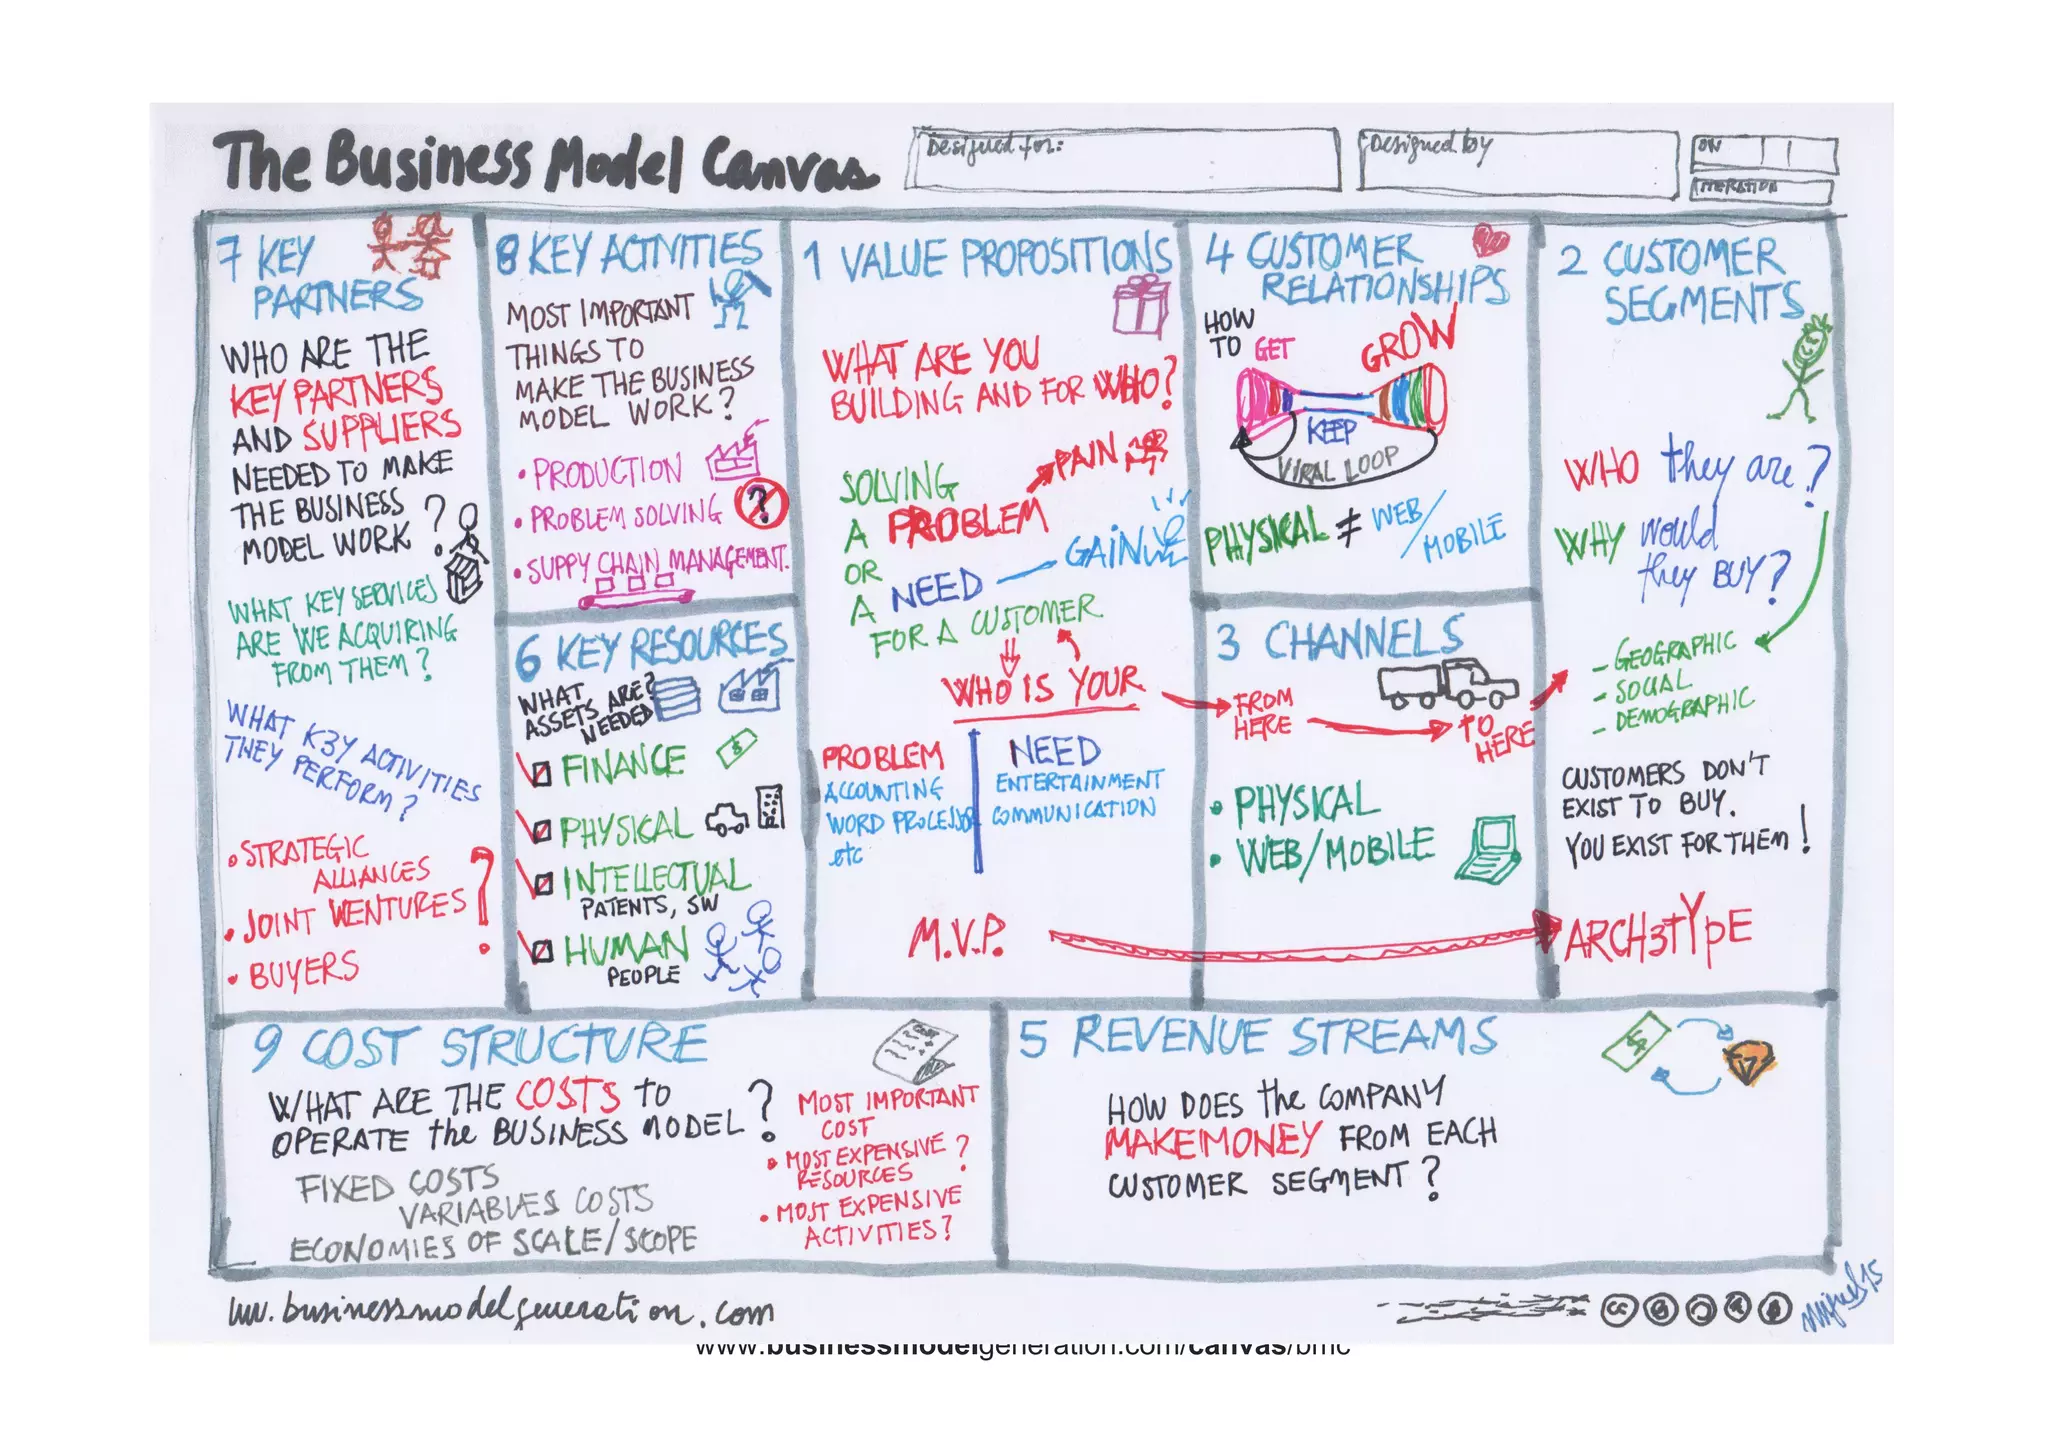 The Business Model Canvas
Designed for:
Designed by
ON
ITERATION
7 KEY
PARTNERS
WHO ARE THE
KEY PARTNERS
AND SUPPLIERS
NEEDED TO MAKE
THE BUSINESS
MODEL WORK ?
WHAT KEY SERVICES
ARE WE ACQUIRING
FROM THEM?
WHAT K3Y ACTIVITIES
THEY PERFORM?
• STRATEGIC
ALLIANCES
• JOINT VENTURES
• BUYERS
?
8 KEY ACTIVITIES
MOST IMPORTANT
THINGS TO
MAKE THE BUSINESS
MODEL WORK?
• PRODUCTION
• PROBLEM SOLVING
?
• SUPPY CHAIN MANAGEMENT.
6 KEY RESOURCES
WHAT
ASSETS ARE?
NEEDED
FINANCE
$
PHYSICAL
INTELLECTUAL
PATENTS, SW
HUMAN
PEOPLE
1 VALUE PROPOSITIONS
WHAT ARE YOU
BUILDING AND FOR WHO?
SOLVING
A PROBLEM
PAIN
OR
A NEED
GAIN
FOR A CUSTOMER
WHO IS YOUR
PROBLEM
ACCOUNTING
WORD PROCESSOR
etc
NEED
ENTERTAINMENT
COMMUNICATION
M.V.P.
4 CUSTOMER
RELATIONSHIPS
HOW
TO GET
GROW
KEEP
VIRAL LOOP
PHYSICAL ≠ WEB/
MOBILE
3 CHANNELS
FROM
HERE
TO
HERE
• PHYSICAL
• WEB/MOBILE
2 CUSTOMER
SEGMENTS
WHO they are?
WHY would
they BUY?
- GEOGRAPHIC
- SOCIAL
- DEMOGRAPHIC
CUSTOMERS DON'T
EXIST TO BUY.
YOU EXIST FOR THEM!
ARCH3TYPE
9 COST STRUCTURE
WHAT ARE THE COSTS TO
OPERATE the BUSINESS MODEL?
FIXED COSTS
VARIABLES COSTS
ECONOMIES OF SCALE/SCOPE
MOST IMPORTANT
COST
• MOST EXPENSIVE ?
RESOURCES
• MOST EXPENSIVE
ACTIVITIES?
5 REVENUE STREAMS
$
HOW DOES the COMPANY
MAKE MONEY FROM EACH
CUSTOMER SEGMENT?
www.businessmodelgeneration.com
cc
www.businessmodelgeneration.com/canvas/bmc